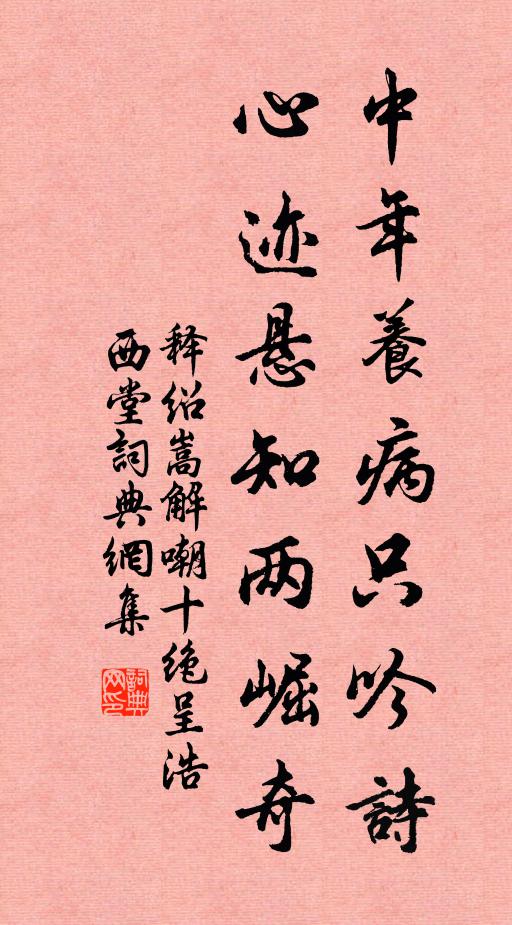 中年養病只吟詩
心迹悬知两崛奇
释绍嵩解嘲十绝呈浩
西堂詞典網集
詞典网印